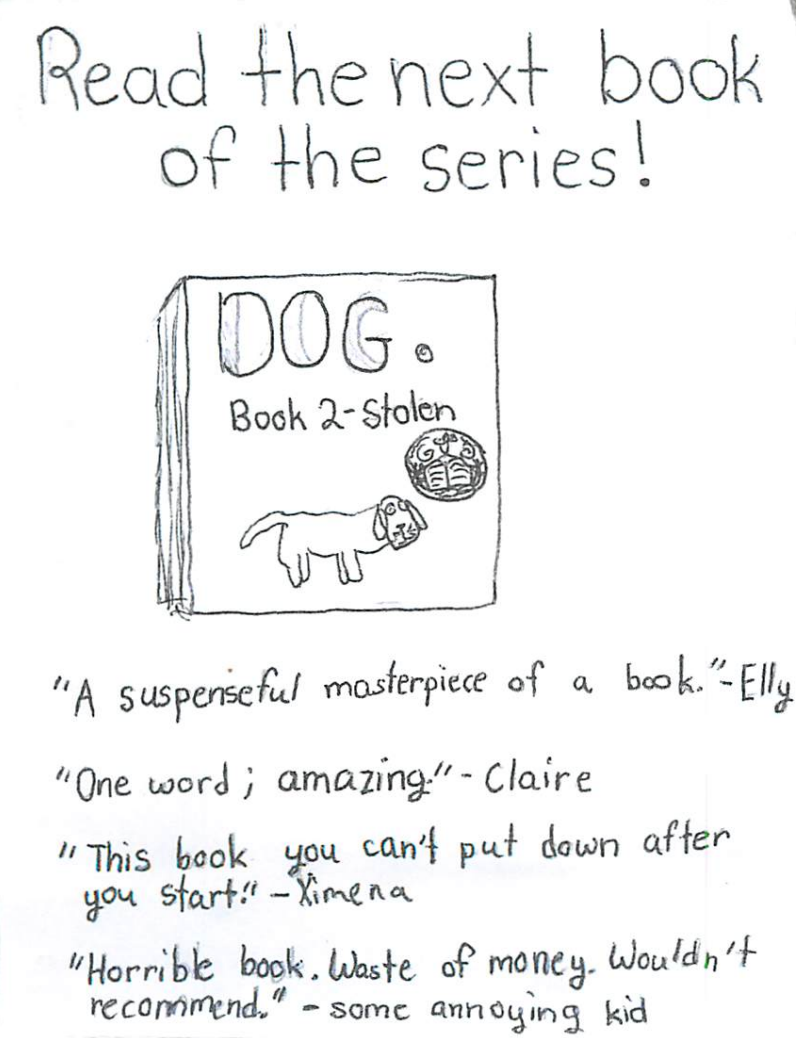 Read the next book
of the series!
DOG.
Book 2-Stolen
"A suspenseful masterpiece of a book."-Elly
"One word; amazing."- Claire
"This book you can't put down after
you start!" -Ximena
"Horrible book. Waste of money. Wouldn't
recommend." - some annoying kid